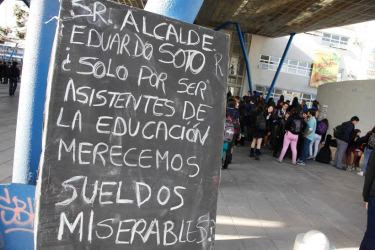 SR. ALCALDE
EDUARDO SOTO R
¿SOLO POR SER
ASISTENTES DE
LA EDUCACIÓN
MERECEMOS
SUELDOS
MISERABLES?